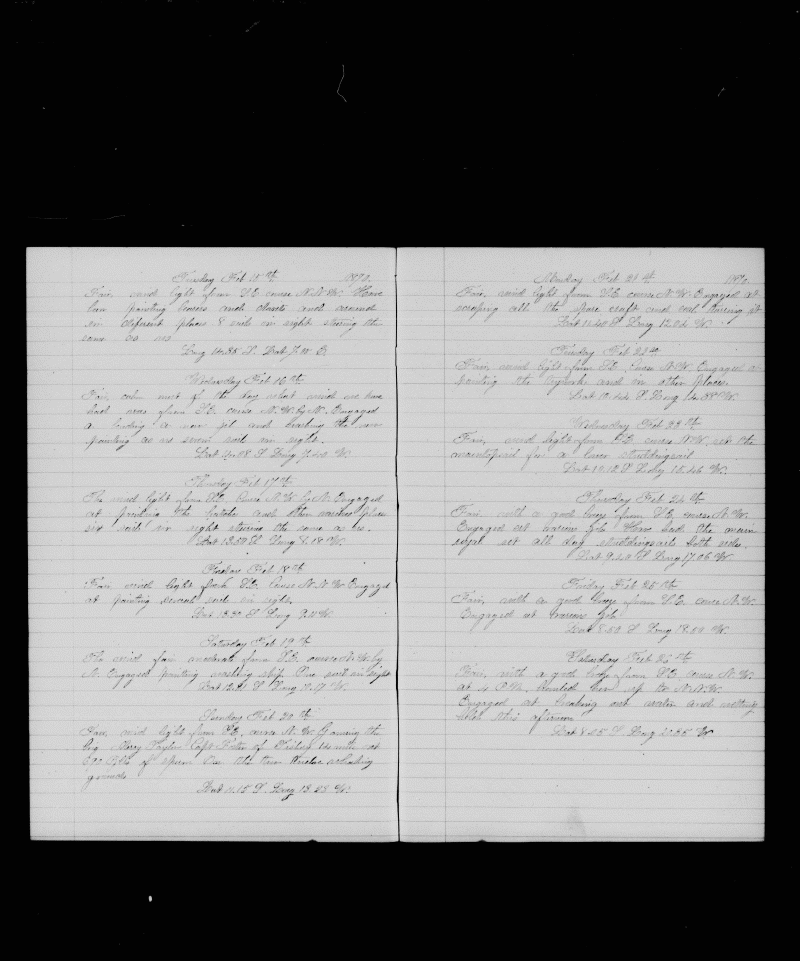 Tuesday Feb 15th 1870
Fair, wind light from S.E. course N.N.W. Have
been painting and closets and around
in diferent places 8 sails in sight stering the
same as us
Long 14.35 S. Lat 7.
Wednesday Feb 16th
Fair, calm most of the day what wind we have
had was from S.E. course N.W. by N. Engaged
a bending a new jib and
painting as us seven sail in sight.
Lat 14.08 S Long 7.40 W.
Thursday Feb 17th
The wind light from S.E. Course N.W. by N. Engaged
at painting the and other various places
six sails in sight stering the same as us.
Lat 13.50 S Long 8.18 W.
Friday Feb 18th
Fair, wind light from S.E. Course N.N.W. Engaged
at painting several sail in sight.
Lat 13.30 S Long 9.11 W.
Saturday Feb 19th
The wind fair moderate from S.E. course N.W. by
N. Engaged painting washing ship One sail in sight
Lat 12.31 S Long 11.17 W.
Sunday Feb 20th
Fair, wind light from S.E. course N.W. Gaming the
brg Mercy Taylor Capt of Tisbury 16 months out
690 bbls of sperm
grounds
Lat 11.15 S. Long 13.23 W.
Monday Feb 21st 1870
Fair, wind light from S.E. course N.W. Engaged at
scraping all the spare craft and coal taring it
Lat 11.40 S Long 12.04 W.
Tuesday Feb 22nd
Fair, wind light from S.E. Course N.W. Engaged at
painting the and in other places.
Lat 10.44 S. Long 14.38 W.
Wednesday Feb 23rd
Fair, wind light from S.E. course N.W. set the
for a lower studdingsail
Lat 10.12 S Long 15.46 W.
Thursday Feb 24th
Fair, with a good breeze from S.E. course N.W.
Engaged at various jobs Have had the main
royal set all day studdingsails both sides.
Lat 9.20 S Long 17.06 W.
Friday Feb 25th
Fair, with a good breeze from S.E. course N.W.
Engaged at various jobs
Lat 8.50 S Long 18.59 W.
Saturday Feb 26th
Fair, with a good breeze from S.E. course N.W.
at 4 P.M. hauled her up to N.N.W.
Engaged at breaking out water and wetting
hold this afternoon
Lat 8.05 S. Long 20.55 W